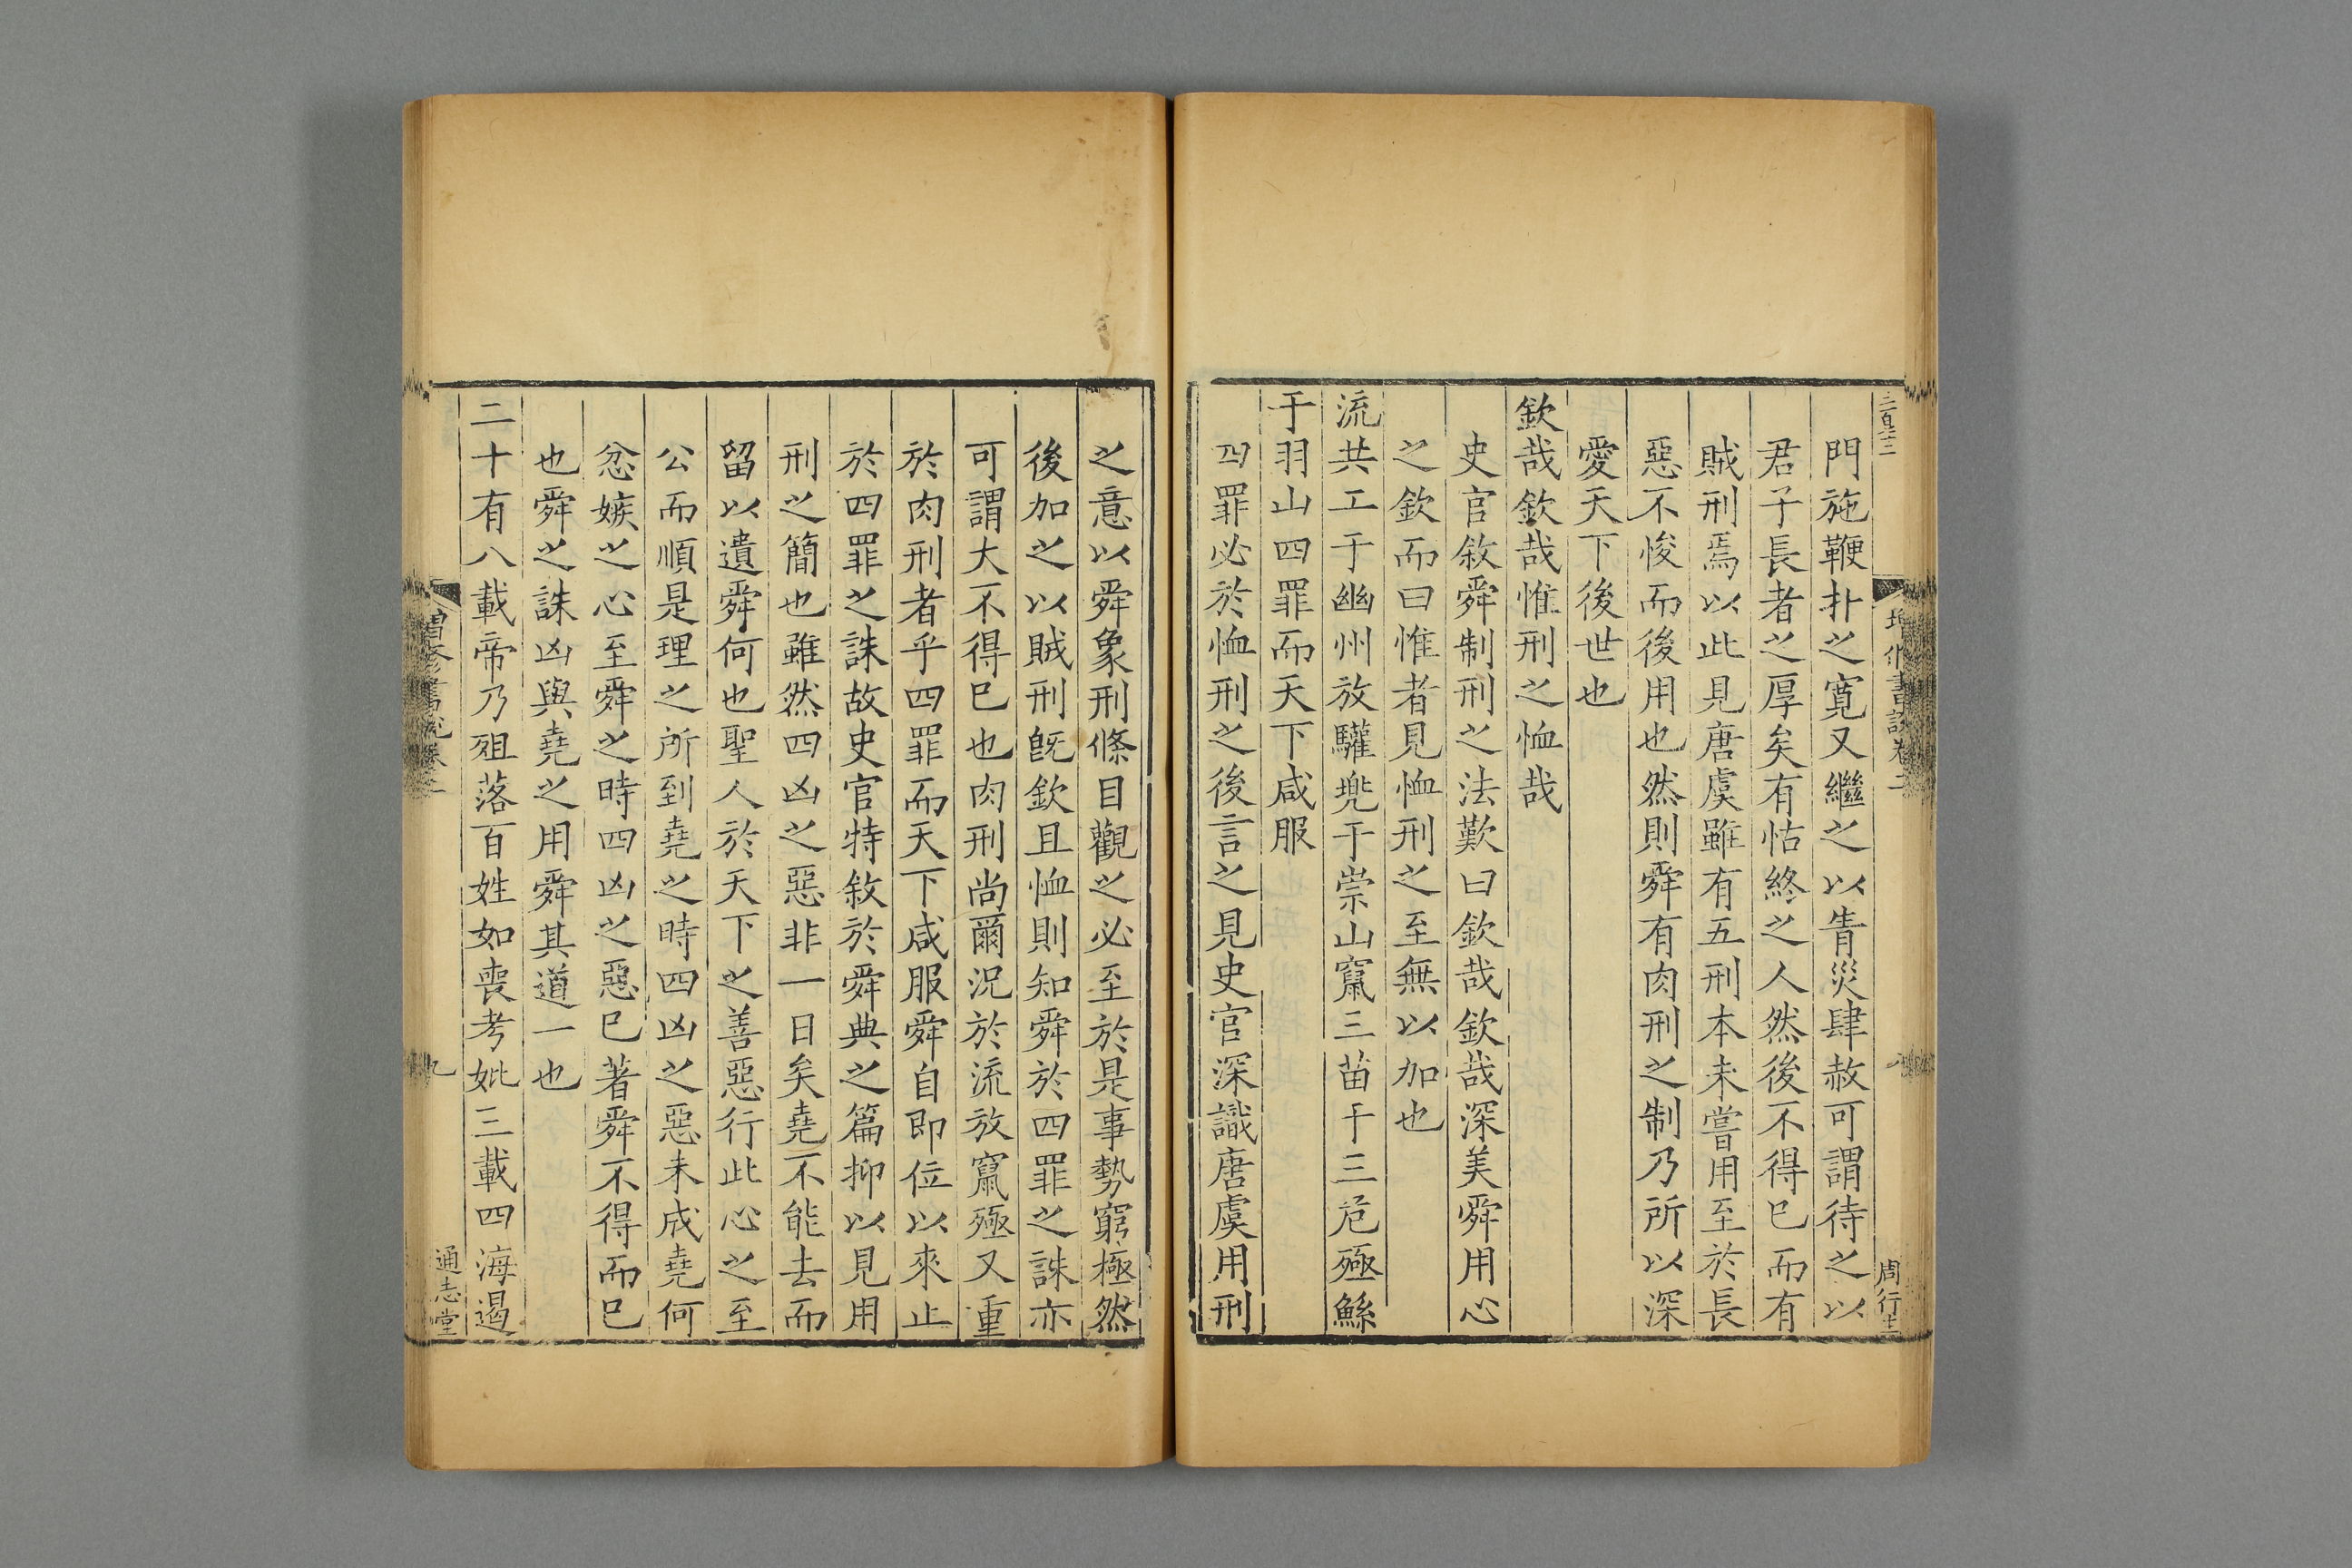 門施鞭扑之寬又繼之以眚災肆赦可謂待之以
君子長者之厚矣有怙終之人然後不得已而有
賊刑焉以此見唐虞雖有五刑本未嘗用至於長
惡不悛而後用也然則舜有肉刑之制乃所以深
愛天下後世也
欽哉欽哉惟刑之恤哉
史官敘舜制刑之法歎曰欽哉欽哉深美舜用心
之欽而曰惟者見恤刑之至無以加也
流共工于幽州放驩兜于崇山竄三苗于三危殛鯀
于羽山四罪而天下咸服
四罪必於恤刑之後言之見史官深識唐虞用刑
之意以舜象刑條目觀之必至於是事勢窮極然
後加之以賊刑旣欽且恤則知舜於四罪之誅亦
可謂大不得已也肉刑尚爾況於流放竄殛又重
於肉刑者乎四罪而天下咸服舜自即位以來止
於四罪之誅故史官特敘於舜典之篇抑以見用
刑之簡也雖然四凶之惡非一日矣堯不能去而
留以遺舜何也聖人於天下之善惡行此心之至
公而順是理之所到堯之時四凶之惡未成堯何
忿嫉之心至舜之時四凶之惡已著舜不得而已
也舜之誅凶與堯之用舜其道一也
二十有八載帝乃殂落百姓如喪考妣三載四海遏
增修書說卷二
九
通志堂